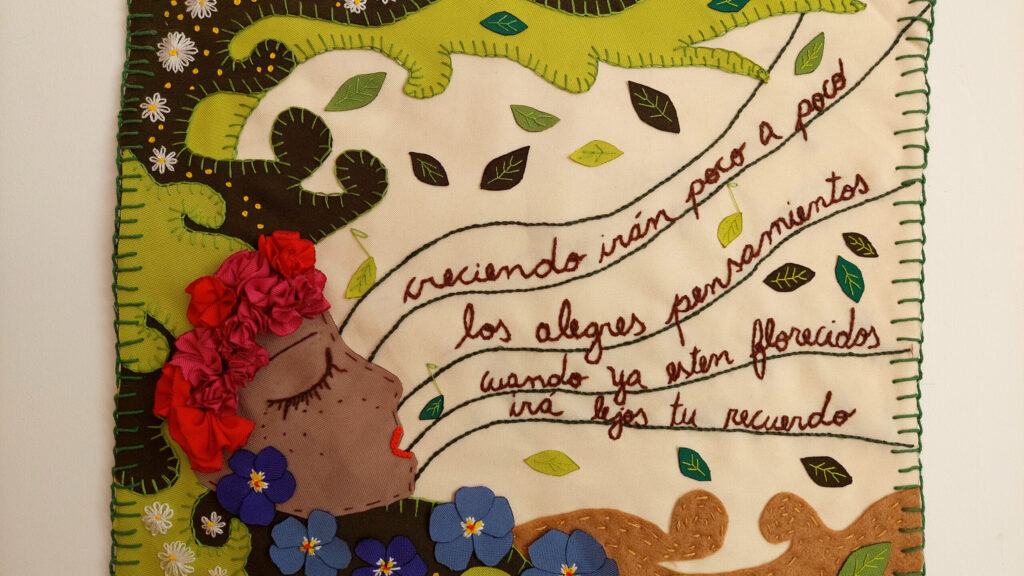 creciendo irán poco a poco
los alegres pensamientos
cuando ya esten florecidos
irá lejos tu recuerdo